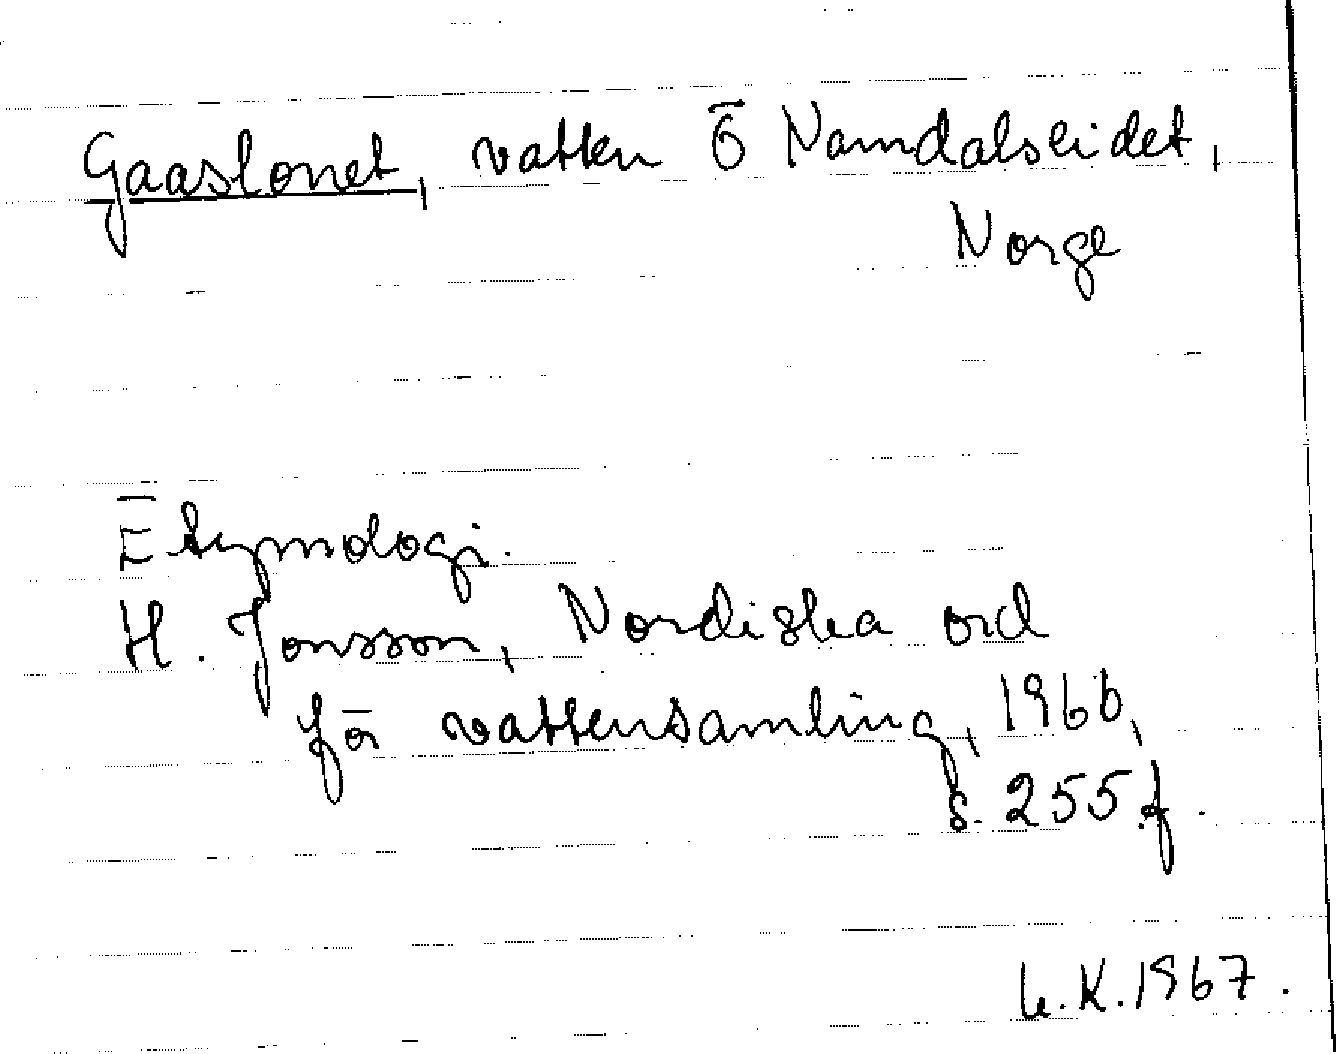 Gaaslonet, vatten Ö Namdalseidet,
Norge
Etymologi.
H. Jonsson, Nordiska ord
för vattensamling, 1966,
s. 255 f.
L.K. 1967.